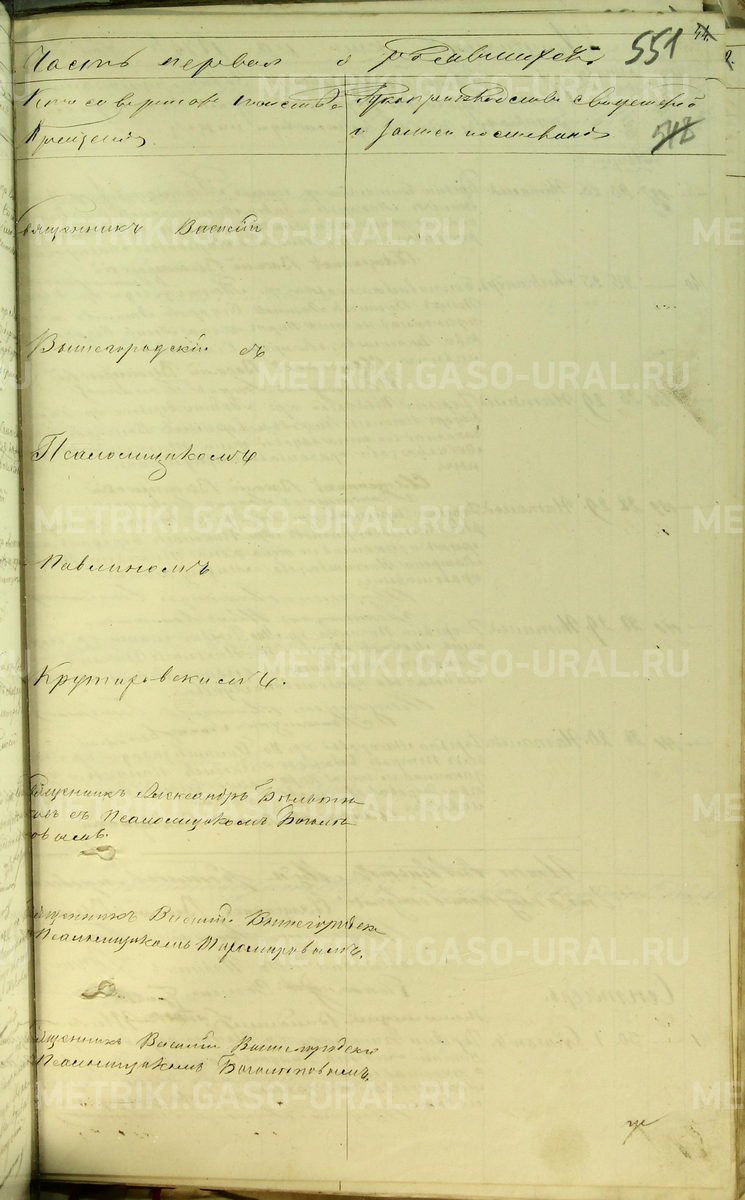 551
Часть первая о родившихся.
Кто совершалъ таинство
крещенія.
Рукоприкладство свидѣтелей
записи по желанію
542
священникъ Василій
Вышегородскій съ
Псаломщикомъ
Павлиномъ
Крутировскимъ.
Священникъ Александръ
съ Псаломщикомъ Боголю
бовымъ.
Священникъ Василій Вышегородскій
Псаломщикомъ
Священникъ Василій Вышегородскій
Псаломщикомъ Боголюбовымъ.
METRIKI.GASO-URAL.RU